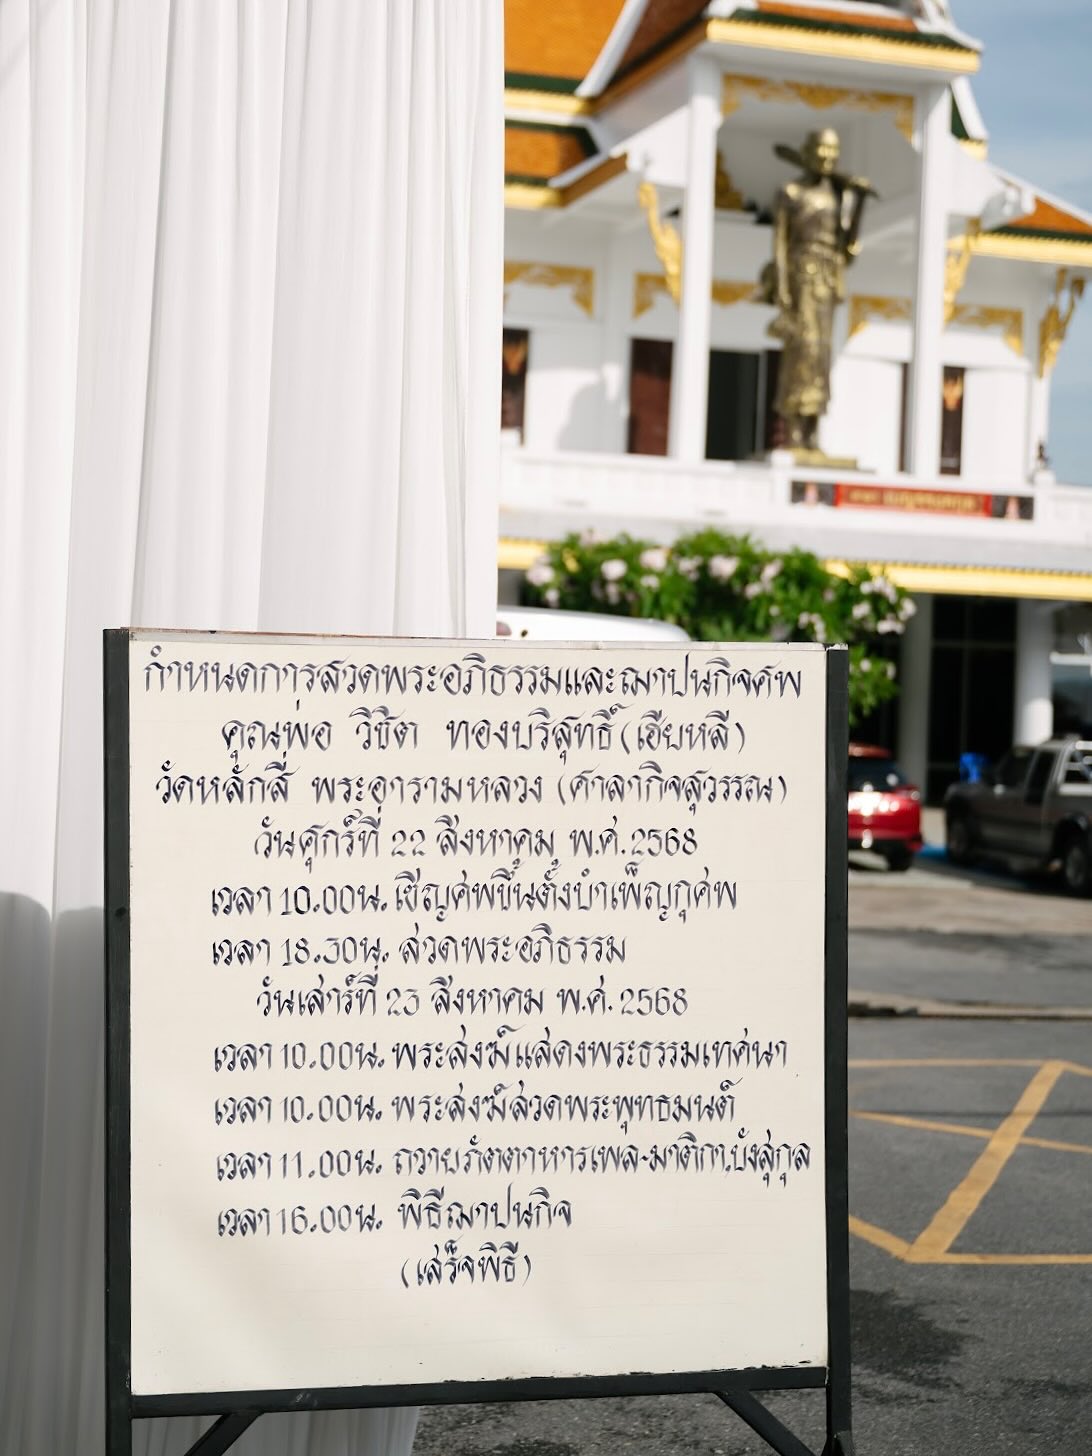 กำหนดการสวดพระอภิธรรมและฌาปนกิจศพ
คุณพ่อ วิชิต ทองบริสุทธิ์ (เฮียหลี)
วัดหลักสี่ พระอารามหลวง (ศาลากิจสุวรรณ)
วันศุกร์ที่ 22 สิงหาคม พ.ศ. 2568
เวลา 10.00น. เชิญศพขึ้นตั้งบำเพ็ญกุศพ
เวลา 18.30น. สวดพระอภิธรรม
วันเสาร์ที่ 23 สิงหาคม พ.ศ. 2568
เวลา 10.00น. พระสงฆ์แสดงพระธรรมเทศนา
เวลา 10.00น. พระสงฆ์สวดพระพุทธมนต์
เวลา 11.00น. ถวายภัตตาหารเพล-มาติกา.บังสุกุล
เวลา 16.00น. พิธีฌาปนกิจ
(เสร็จพิธี)